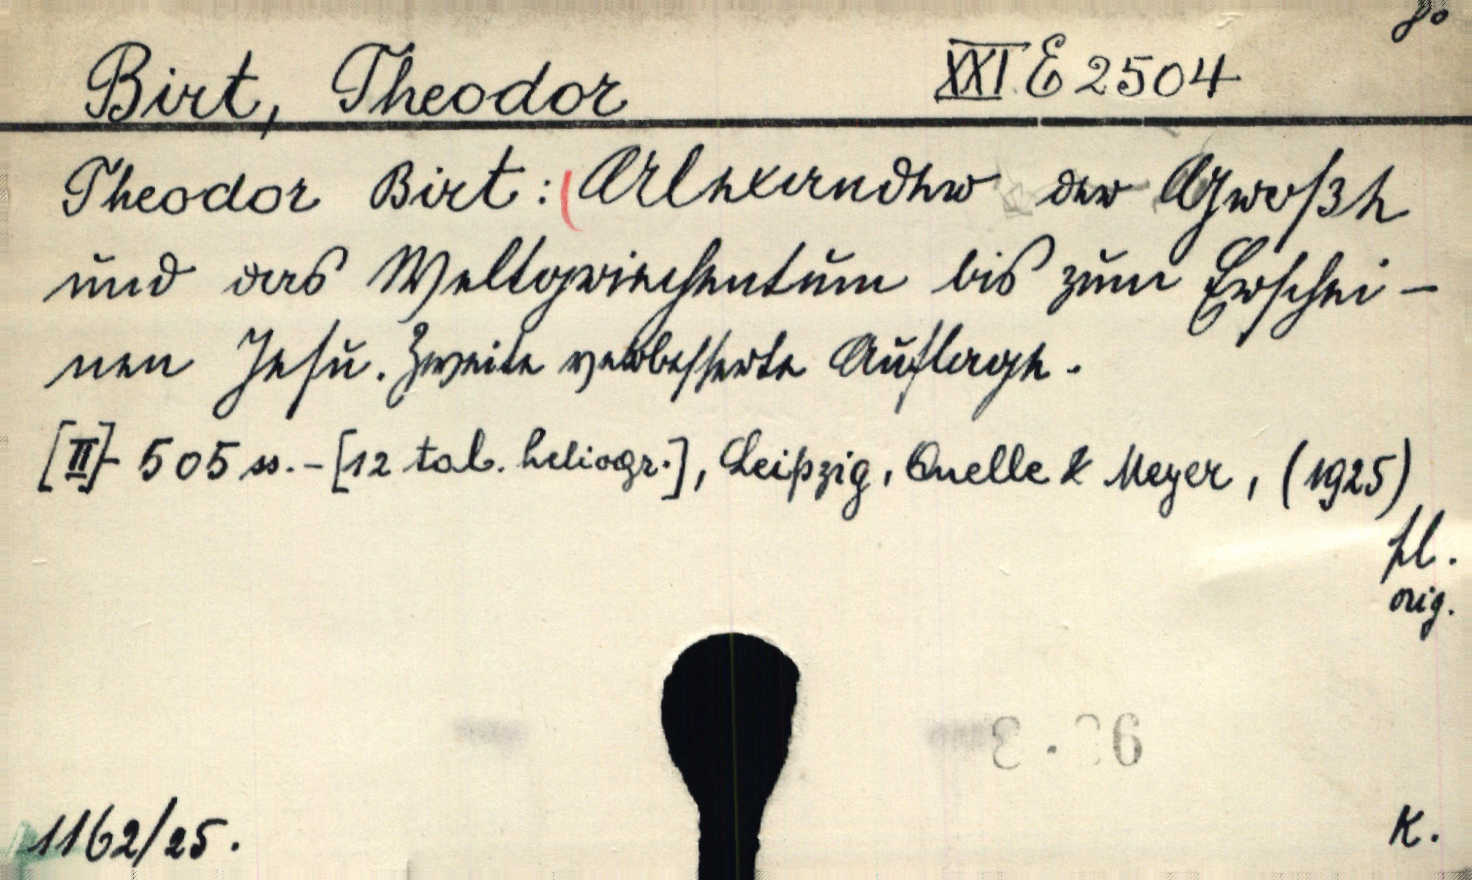 8°
Birt, Theodor XXI E 2504
Theodor Birt: Alexander der Große
und das Weltgriechentum bis zum Erschei-
nen Jesu. Zweite verbesserte Auflage.
[II]-505 ss.-[12 tab. heliogr.], Leipzig, Quelle & Meyer, (1925)
pl.
orig.
1162/25. K.